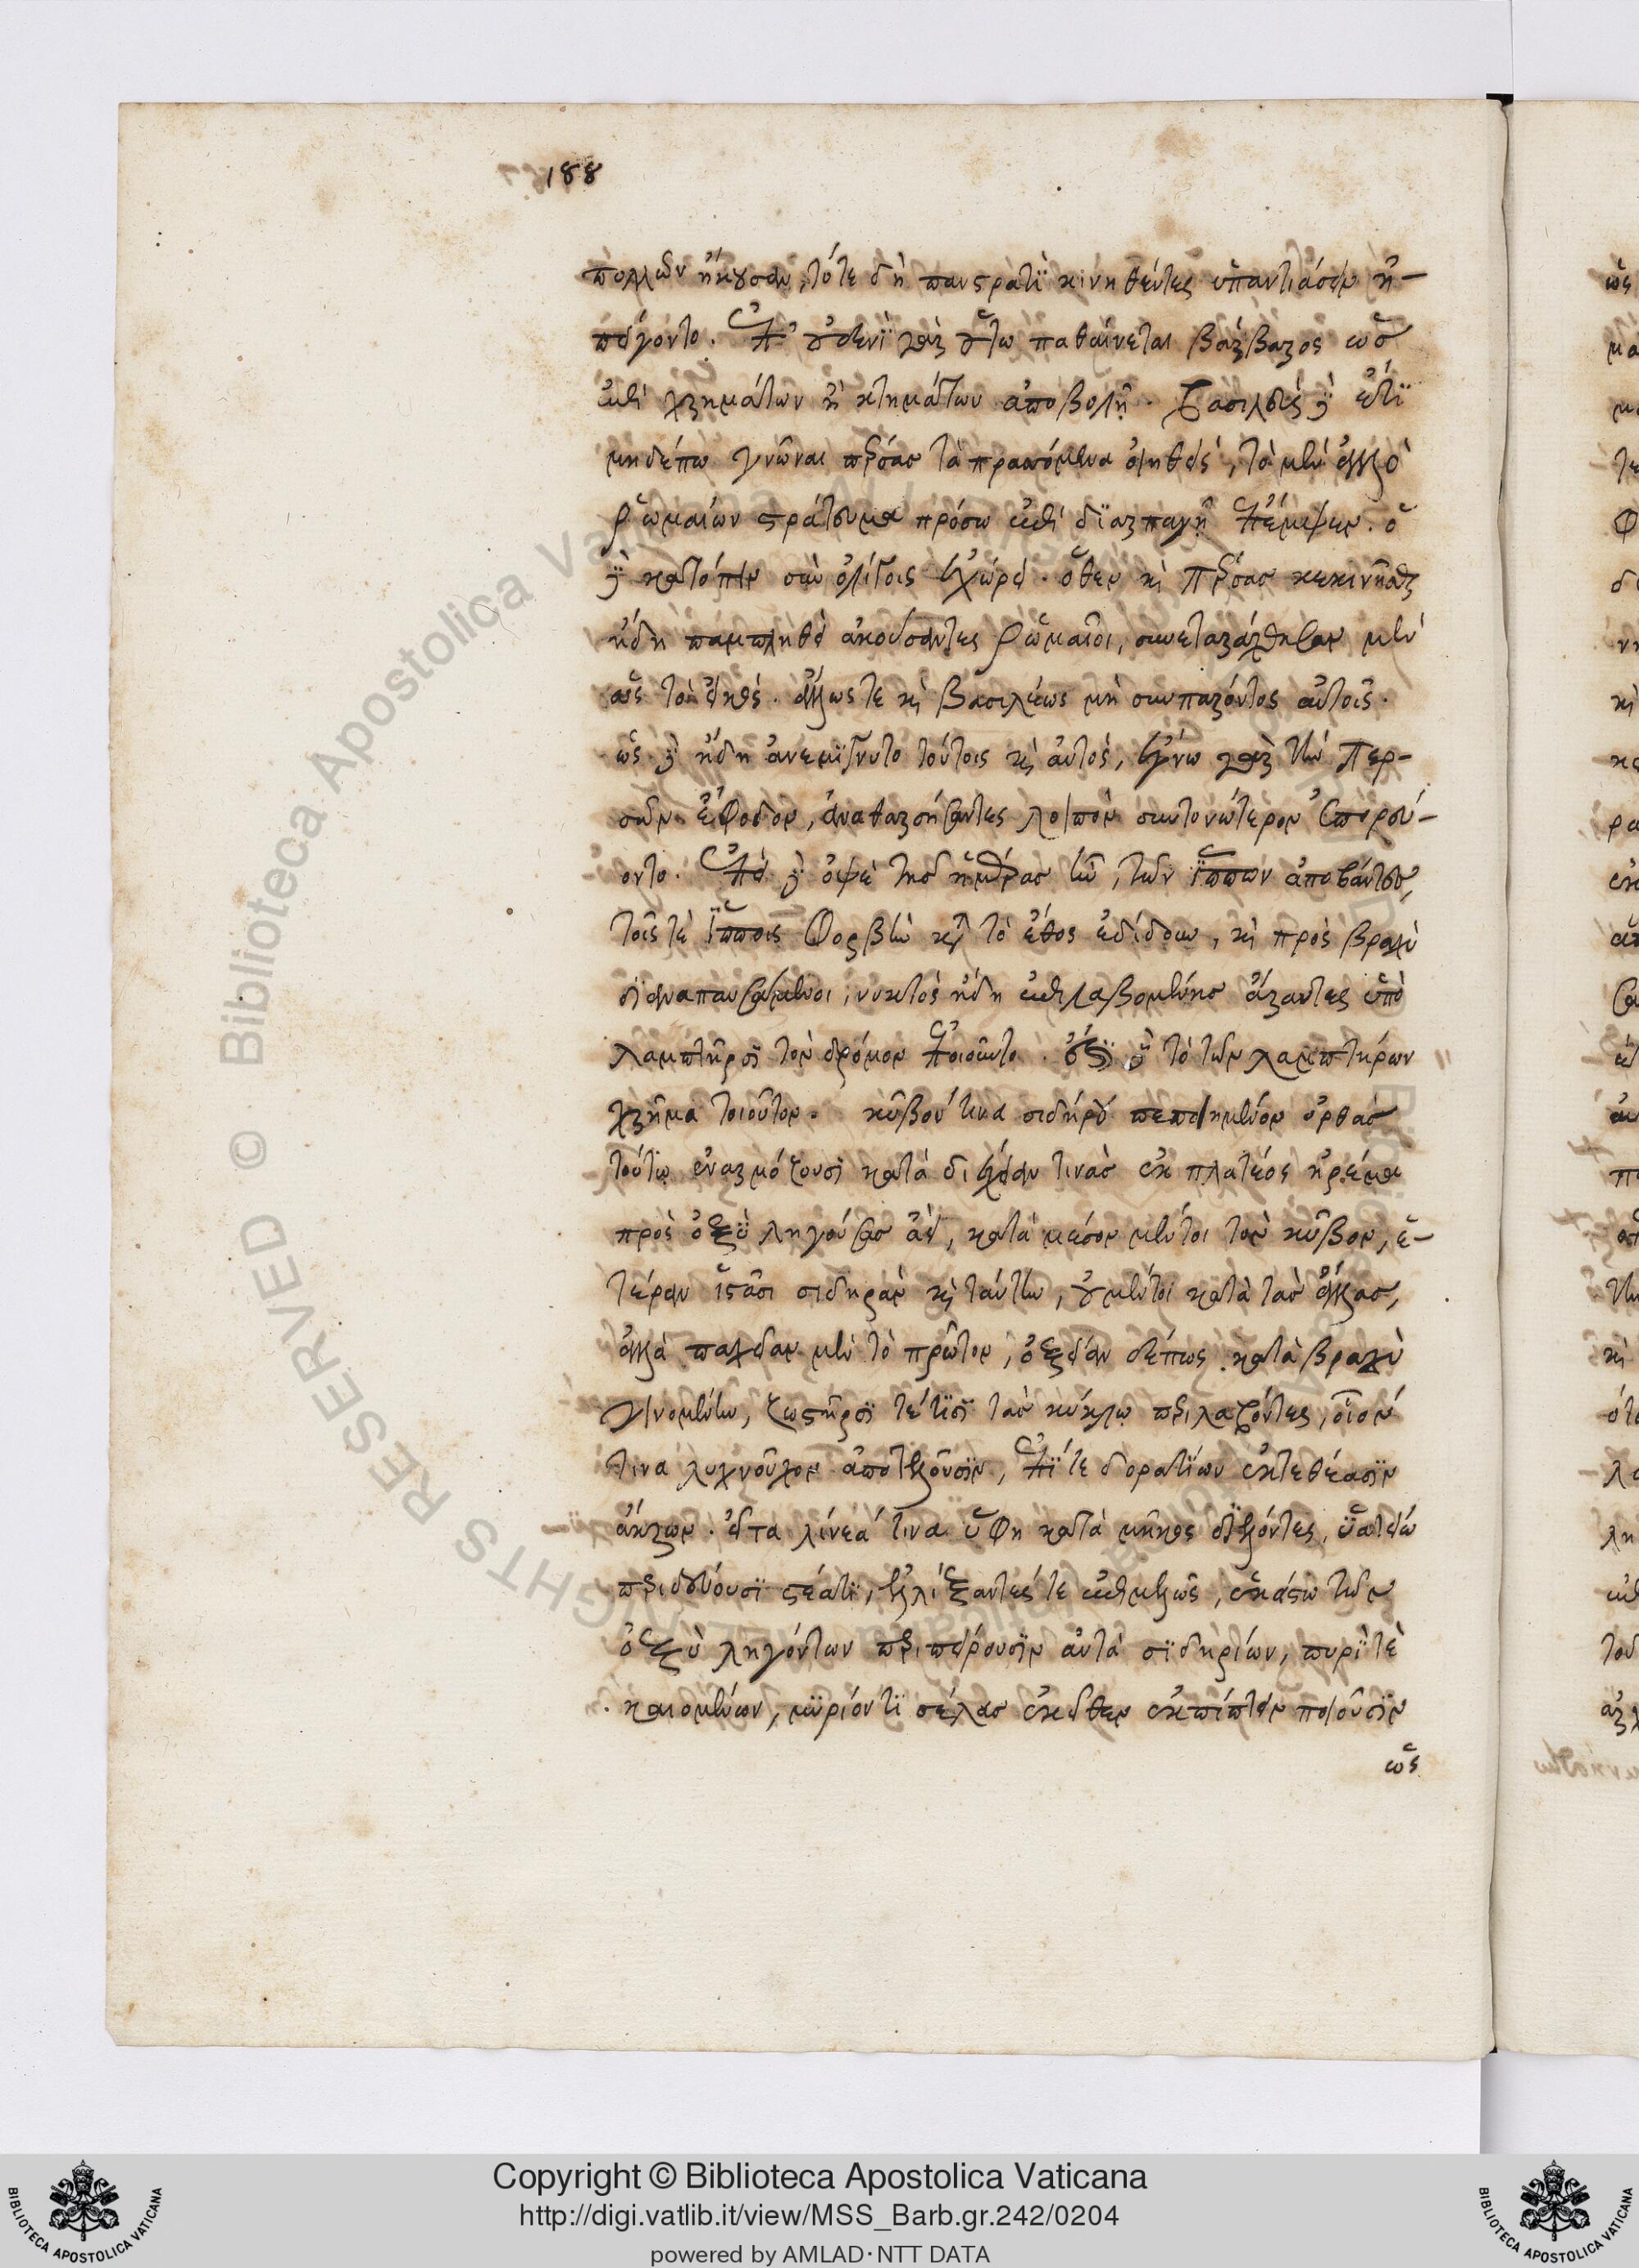 188
πολλῶν ἤκουσαν, τότε δὴ πανστρατὶ κινηθέντες ὑπαντιάσειν ἠ-
πείγοντο. ἐπ' οὐδενὶ γὰρ οὕτω παθαίνεται βάρβαρος ὡς
ἐπὶ χρημάτων ἢ κτημάτων ἀποβολῇ. βασιλεὺς δὲ ἔτι
μηδέπω γνῶναι πέρσας τὰ πραττόμενα οἰηθεὶς, τὸ μὲν ἄλλο
ῥωμαίων στράτευμα πρόσω ἐπὶ διαρπαγῇ ἔπεμψεν. ὁ
δὲ κατόπιν σὺν ὀλίγοις ἐχώρει. ὅθεν καὶ πέρσας κεκινῆσθαι
ἤδη παμπληθεὶ ἀκούσαντες ῥωμαῖοι, συνεταράχθησαν μὲν
ὡς τὸ εἰκός. ἄλλως τε καὶ βασιλέως μὴ συμπαρόντος αὐτοῖς.
ὡς δὲ ἤδη ἀνεμίγνυτο τούτοις καὶ αὐτός, ἔγνω γὰρ τὴν περ-
σῶν ἔφοδον, ἀναθαρσήσαντες λοιπὸν συντονώτερον ἐπορεύ-
οντο. ἐπεὶ δὲ ὀψὲ τῆς ἡμέρας ἦν, τῶν ἵππων ἀποβάντες,
τοῖς τε ἵπποις φορβὴν κατὰ τὸ ἔθος ἐδίδουν, καὶ πρὸς βραχὺ
διαναπαυσάμενοι, νυκτὸς ἤδη ἐπιλαβομένης ἄραντες ὑπὸ
λαμπτῆρσι τὸν δρόμον ἐποιοῦντο. ἔστι δὲ τὸ τῶν λαμπτήρων
χρῆμα τοιοῦτον. κύβον τινα σιδήρου πεποιημένον ὀρθὰς
τούτῳ ἐναρμόζουσι κατὰ διέχειαν τινας ἐκ πλατέος ἠρέμα
πρὸς ὀξὺ ληγούσας ἀεὶ, κατὰ μέσον μέντοι τὸν κύβον, ἑ-
τέραν ἱστᾶσι σιδηρᾶν καὶ ταύτην, οὐ μέντοι κατὰ τὰς ἄλλας,
ἀλλὰ παχεῖαν μὲν τὸ πρῶτον, ὀξεῖαν δέ πως κατὰ βραχὺ
γινομένην, ζωστῆρσι τέ τισι τὰς κύκλῳ περιλαβόντες, οἷόν
τινα λυχνοῦχον ἀποτελοῦσιν, ἐπί τε δορατίων ἐκτεθέασιν
ἄκρων. εἶτα λίνεά τινα ὕφη κατὰ μῆκος διελόντες, ὑατείῳ
περιδεύουσι στέατι, ἑλίξαντές τε ἐπιμελῶς, ἑκάστῳ τῶν
ὀξὺ ληγόντων περιπείρουσιν αὐτὰ σιδηρίων, πυρί τε
καιομένων, μυρίον τι σέλας ἐκεῖθεν ἐκπίπτειν ποιοῦσιν
ὡς
Copyright © Biblioteca Apostolica Vaticana
http://digi.vatlib.it/view/MSS_Barb.gr.242/0204
powered by AMLAD·NTT DATA